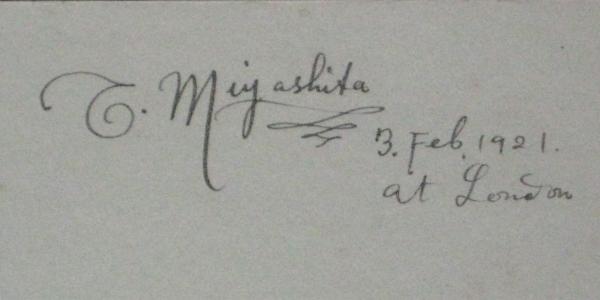 T. Miyashita
3. Feb. 1921.
at London